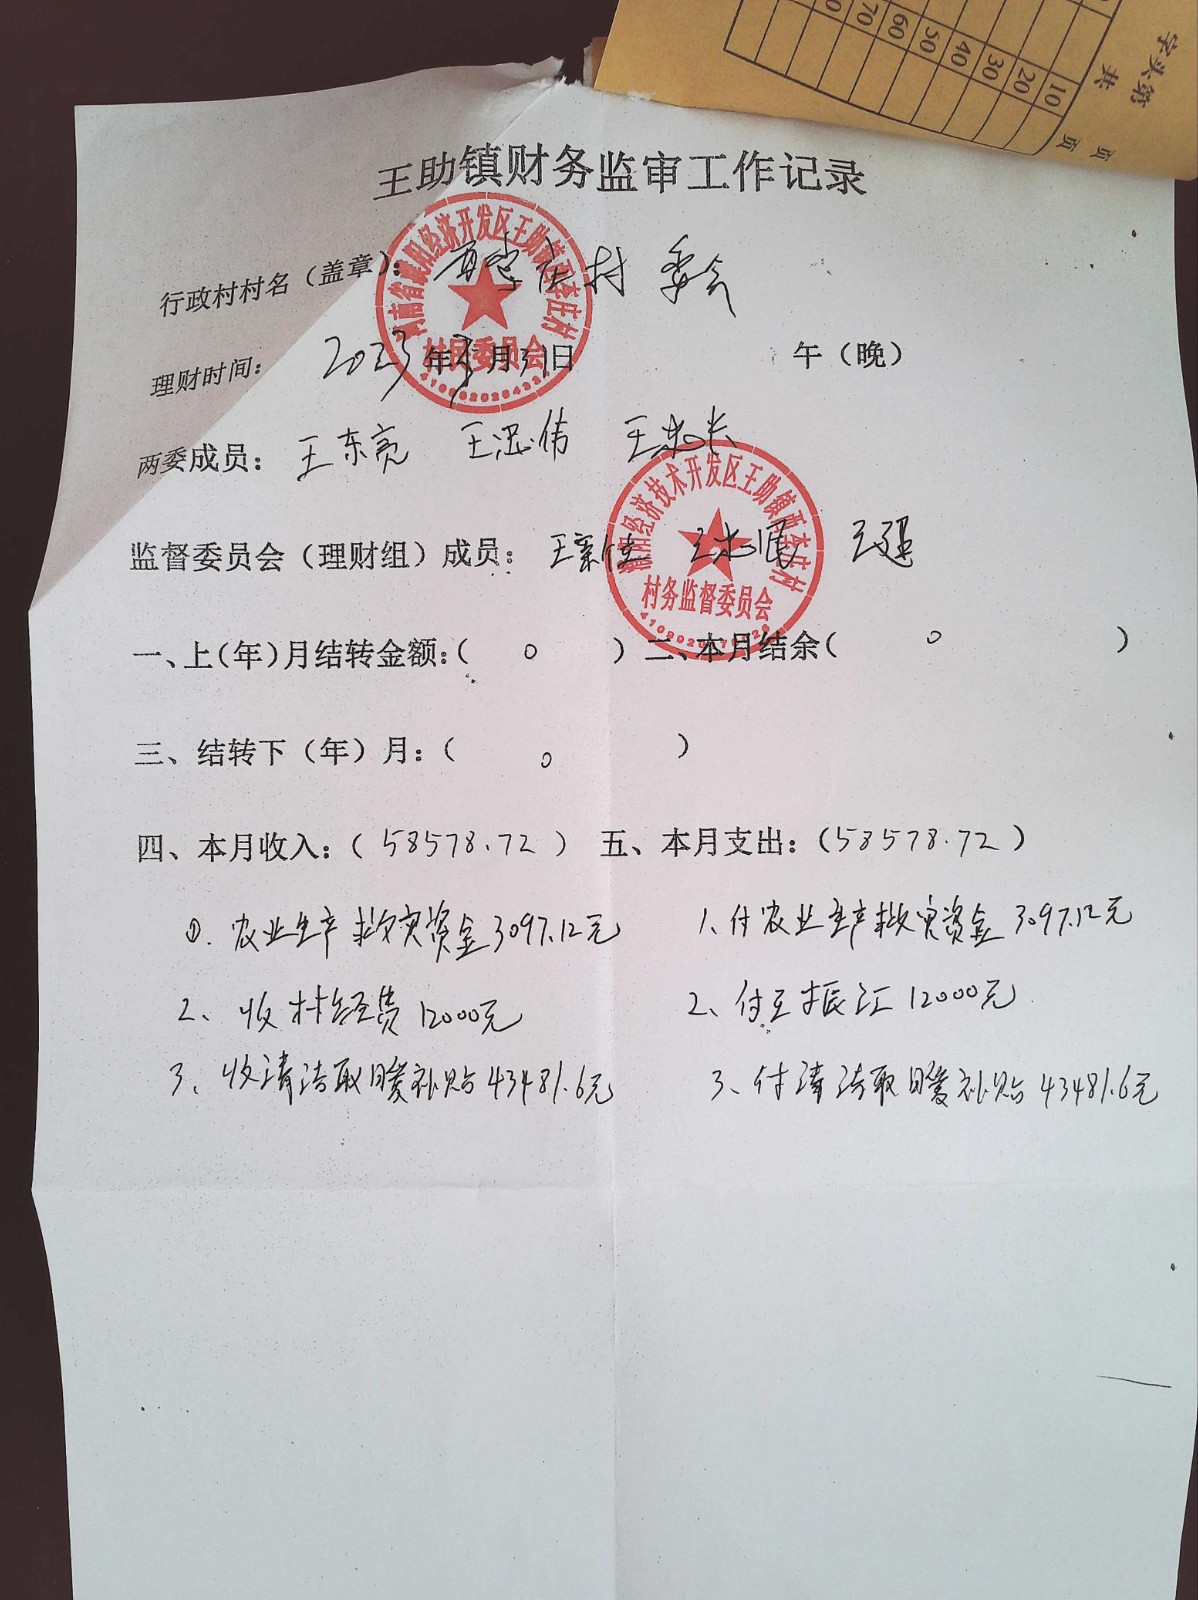 字头第
共 页 页
10 20 30 40 50 60 70
王助镇财务监审工作记录
行政村村名（盖章）：西李庄村委会
河南省濮阳经济开发区王助镇西李庄村
村民委员会
理财时间： 2023年3月31日 午（晚）
两委成员： 王东亮
监督委员会（理财组）成员： 王强
濮阳经济技术开发区王助镇西李庄村
村务监督委员会
一、上（年）月结转金额：（ 0 ） 二、本月结余（ 0 ）
三、结转下（年）月：（ 0 ）
四、本月收入：（58578.72） 五、本月支出：（58578.72）
①. 农业生产救灾资金3097.12元 1、付农业生产救灾资金3097.12元
2、收村经费12000元 2、付王振江12000元
3、收清洁取暖补贴43481.6元 3、付清洁取暖补贴43481.6元